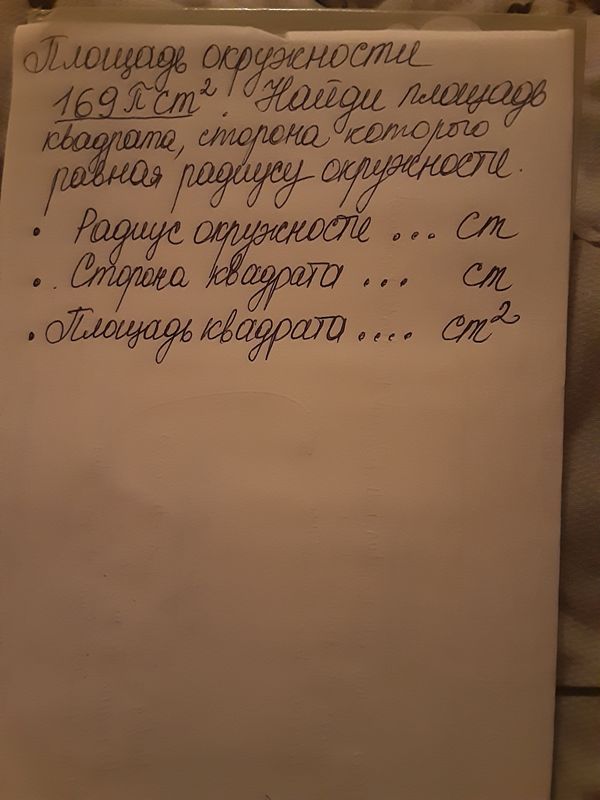 Площадь окружности
169 П cm². Найди площадь
квадрата, сторона которого
равная радиусу окружности.
• Радиус окружности ... cm
• Сторона квадрата ... cm
• Площадь квадрата .... cm²